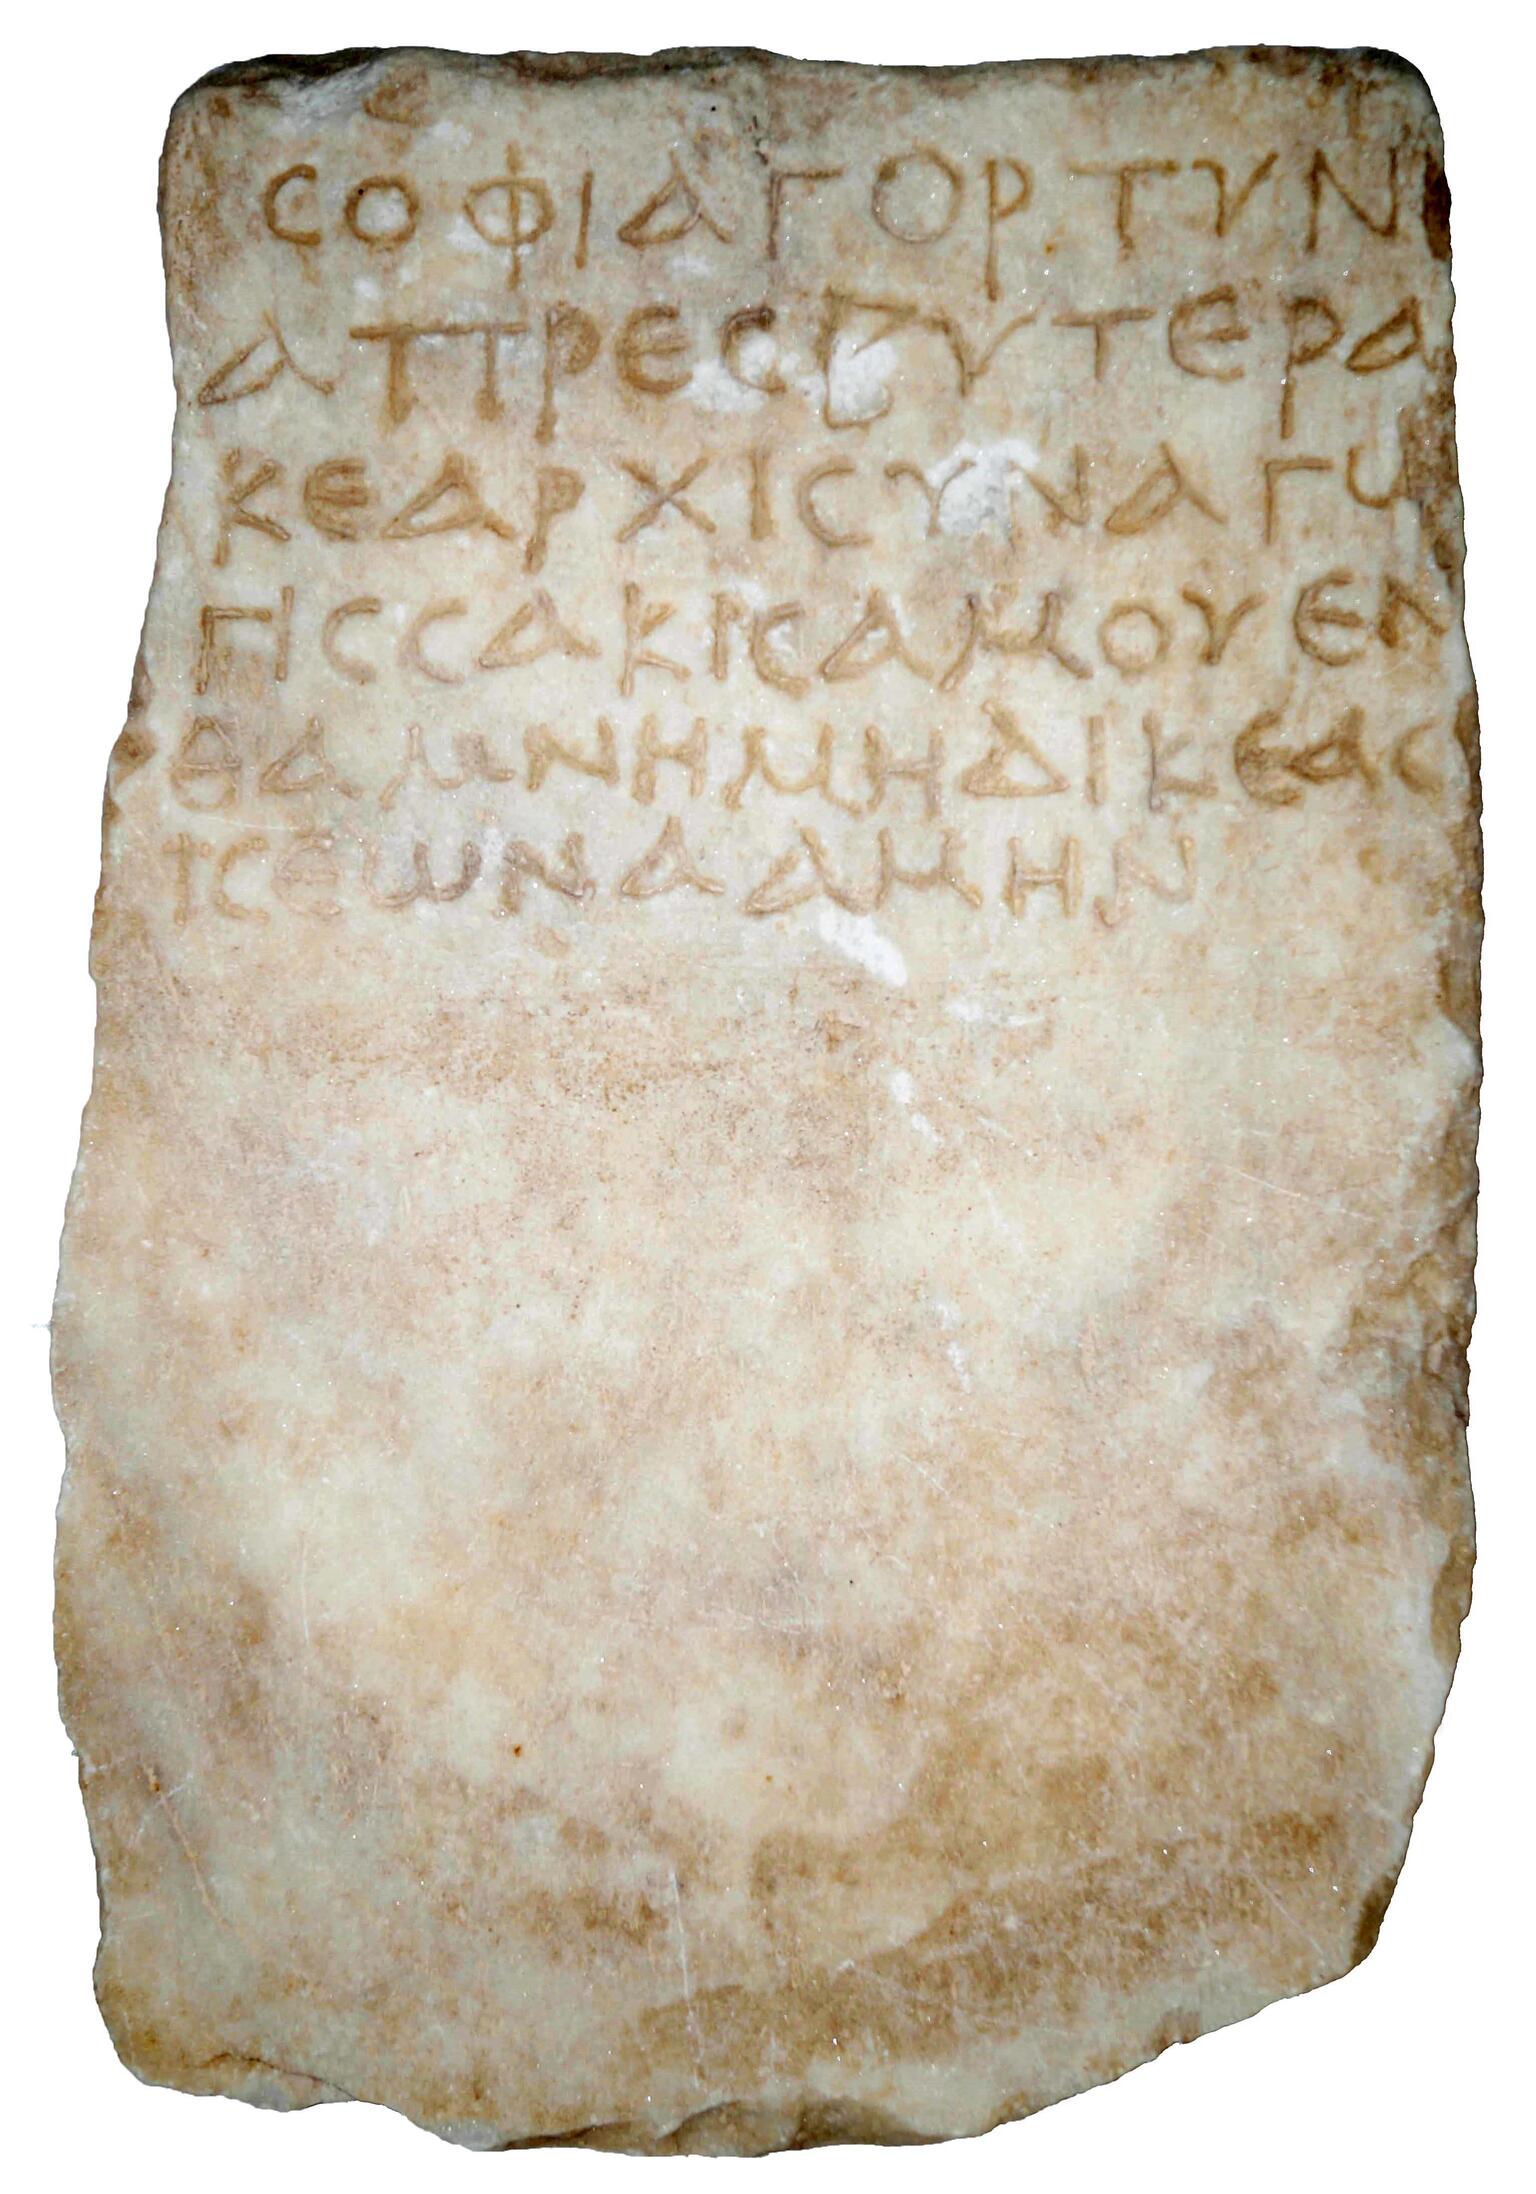 ϹΟΦΙΑΓΟΡΤΥΝΙ
ΑΠΡΕϹΒΥΤΕΡΑ
ΚΕΑΡΧΙϹΥΝΑΓΩ
ΓΙϹϹΑΚΙϹΑΜΟΥΕΝ
ΘΑΜΝΗΜΗΔΙΚΕΑϹ
ΙϹΕΩΝΑΑΜΗΝ